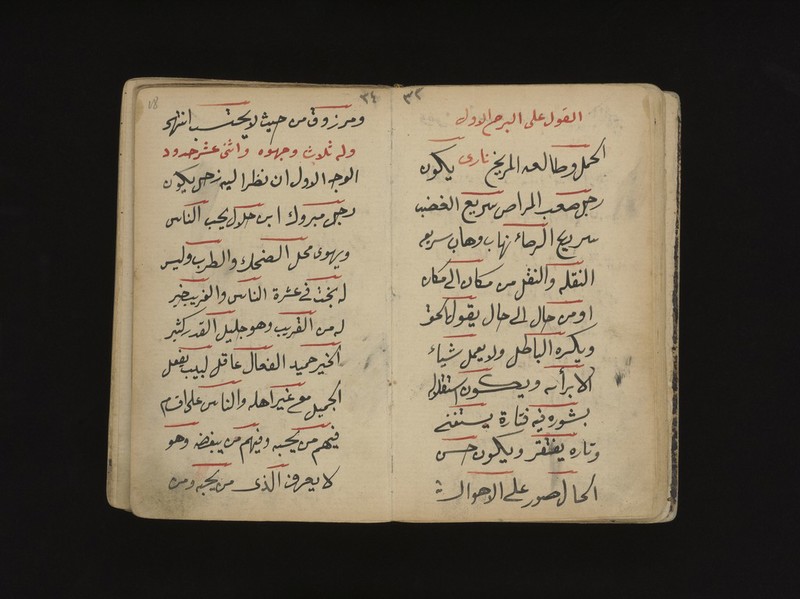 ٣٣
القول على البرج الاول
الحمل وطالعه المريخ نارى يكون
رجل صعب المراص سريع الغضب
سريع الرضائ نهاب وهاب سريع
النقله والنقل من مكان الى مكان
او من حال الى حال يقول الحق
ويكره الباطل ولا يعمل شياء
الا برأيه ويكون استقلال
بشوره فيه فتارة يستغنى
وتاره يفتقر ويكون حسن
الحال صور على الاحوال
٣٤
ومرزوق من حيث لا يحتسب انتهى
وله ثلاث وجهوه واثنى عشر حدود
الوجه الاول ان نظر اليه زحل يكون
رجل مبروك ابن حلال يحب الناس
ويهوى محل الضحك والطرب وليس
له بخت في عشرة الناس والغريب خير
له من القريب وهو جليل القدر كثير
الخير حميد الفعال عاقل لبيب يفعل
الجميل مع غير اهله والناس على اقسام
فيهم من يحبه وفيهم من يبغضه وهو
لا يعرف الذى من يحبه ومن